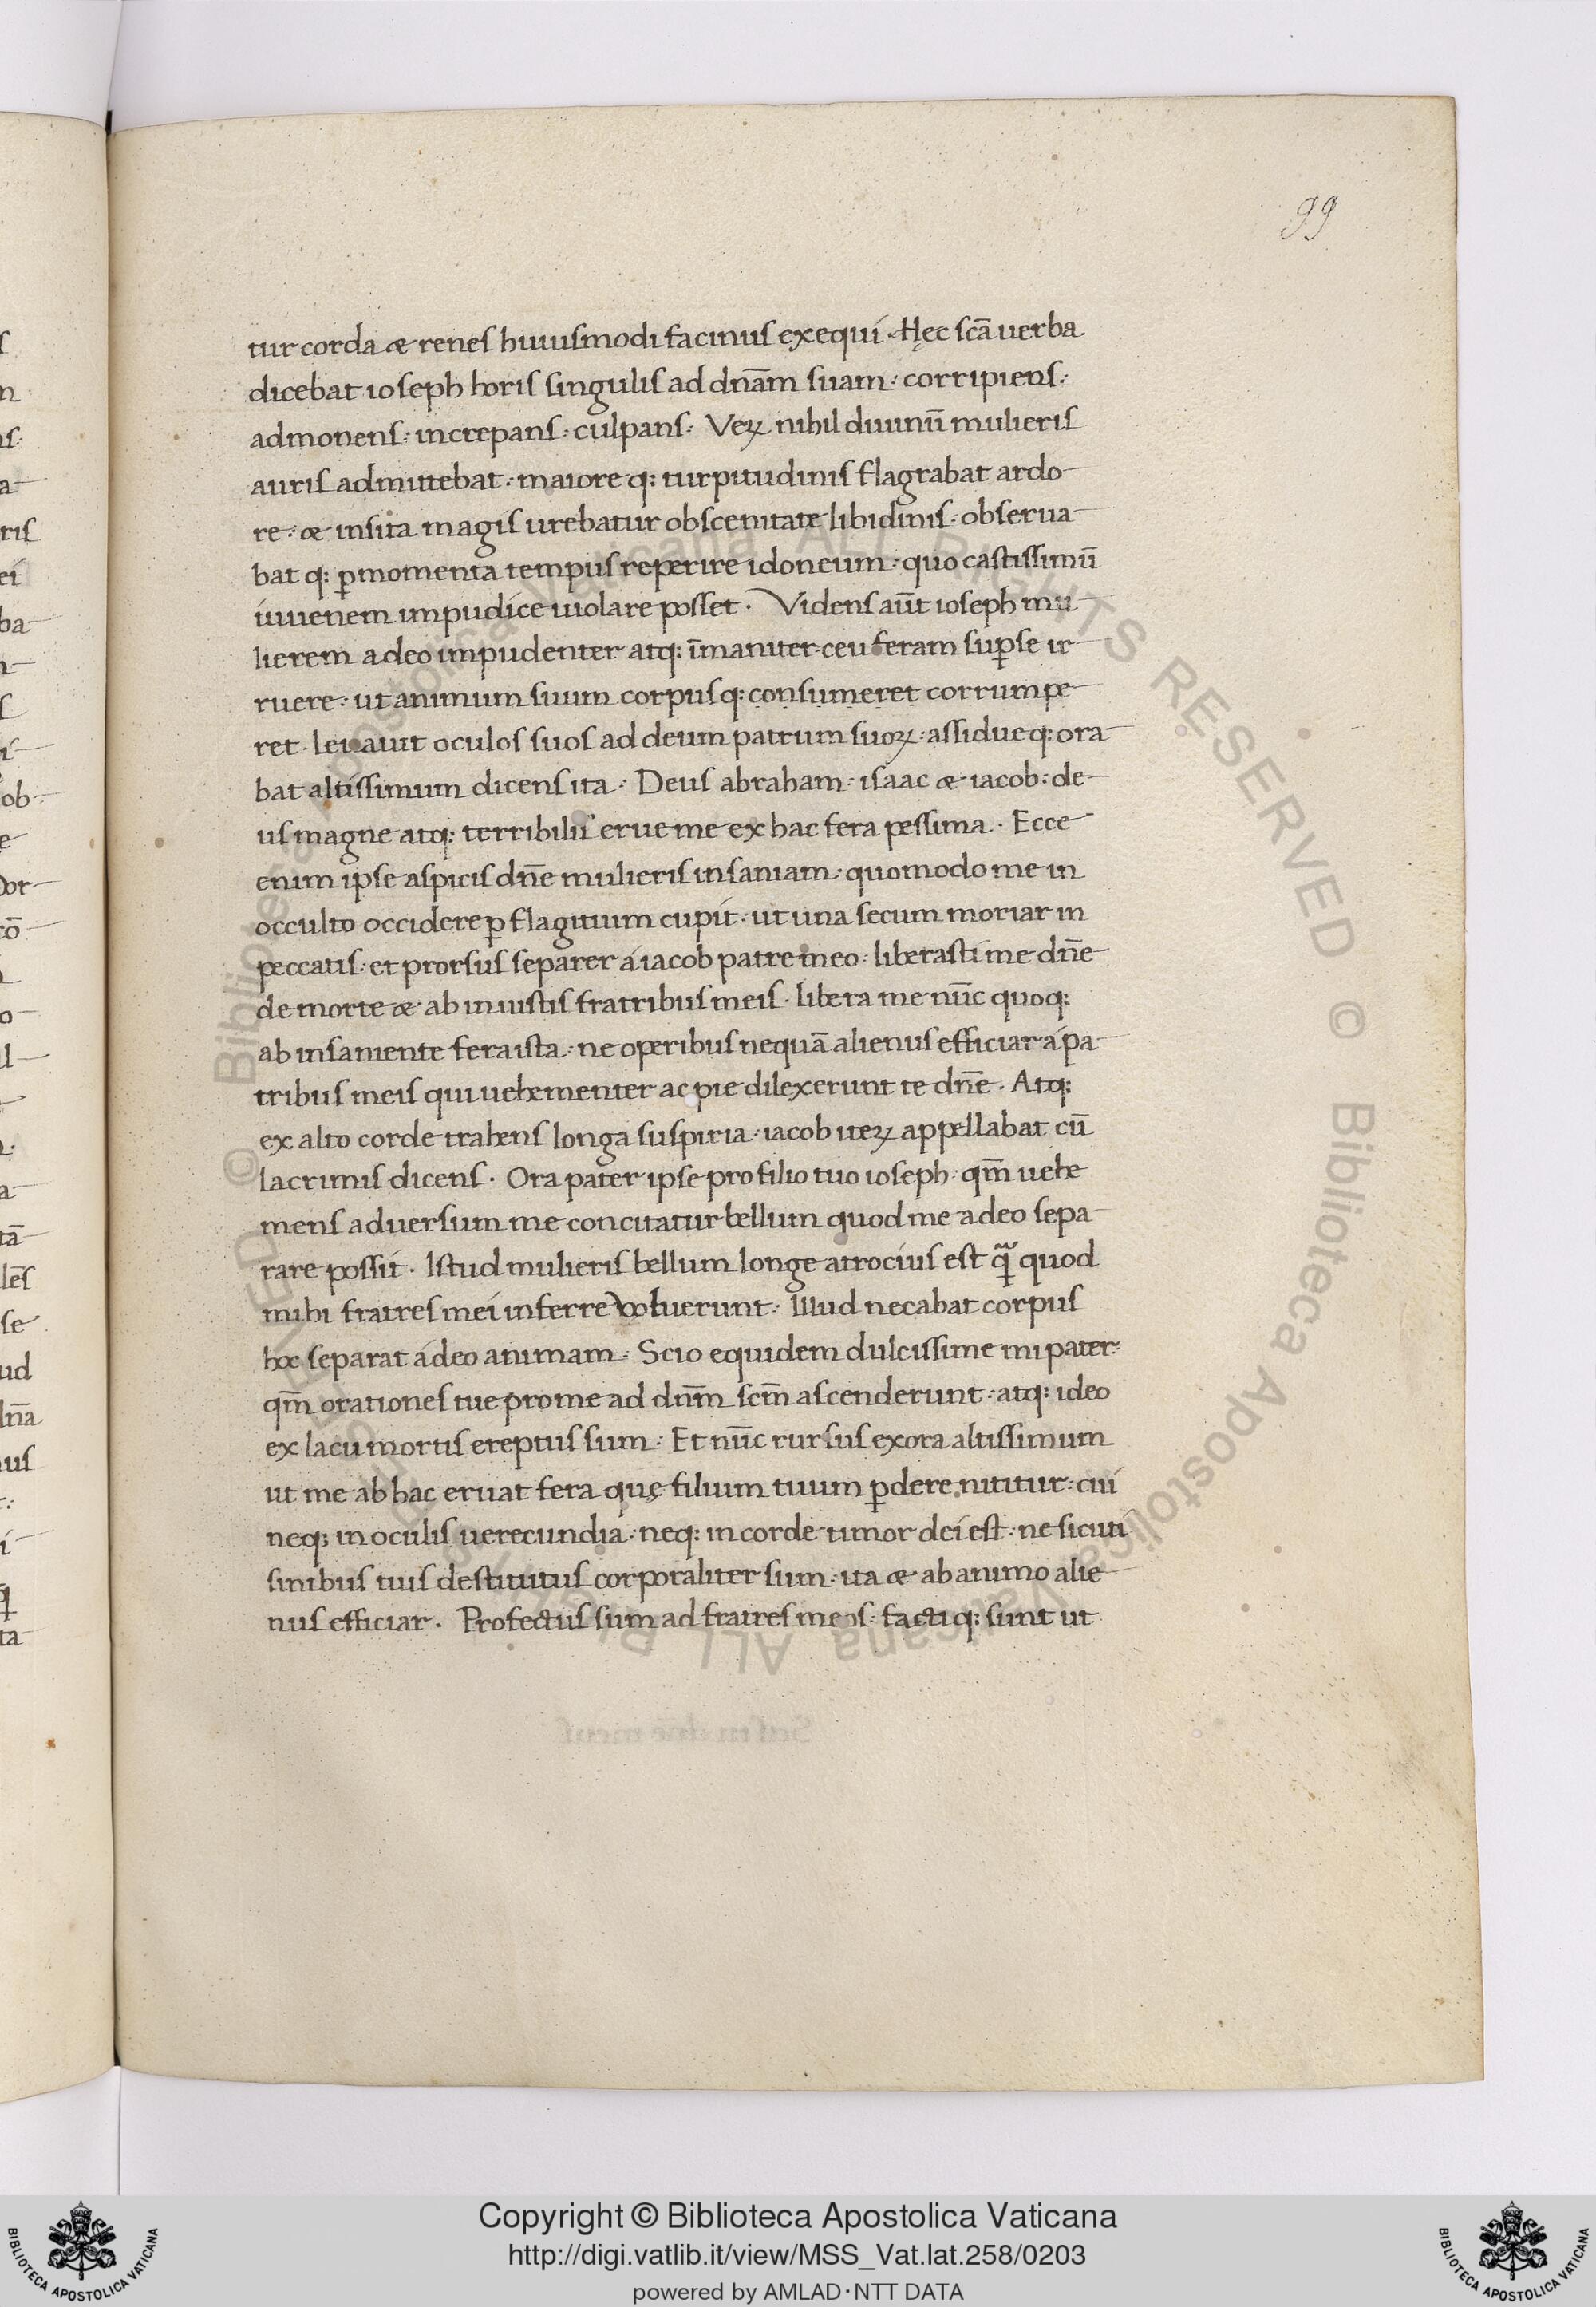 99
tur corda & renes huiusmodi facinus exequi · Hęc scā uerba
dicebat ioseph horis singulis ad dnām suam : corripiens :
admonens : increpans : culpans : Veꝝ nihil diuinū mulieris
auris admittebat : maiore q; turpitudinis flagrabat ardo
re : & insita magis urebatur obscenitate libidinis : obserua
bat q; ꝑ momenta tempus reperire idoneum : quo castissimū
iuuenem impudice uiolare posset · Videns aūt ioseph mu
lierem adeo impudenter atq; īmaniter ceu feram suꝑ se ir
ruere : ut animum suum corpus q; consumeret corrumpe
ret · leuauit oculos suos ad deum patrum suoꝝ : assidue q; ora
bat altissimum dicens ita : Deus abraham : isaac & iacob : de
us magne atq; terribilis erue me ex hac fera pessima · Ecce
enim ipse aspicis dn̄e mulieris insaniam : quomodo me in
occulto occidere ꝑ flagitium cupit : ut una secum moriar in
peccatis : et prorsus separer á iacob patre meo : liberasti me dn̄e
de morte & ab iniustis fratribus meis · libera me nūc quoq;
ab insaniente fera ista : ne operibus nequā alienus efficiar á pa
tribus meis qui uehementer ac pie dilexerunt te dn̄e · Atq;
ex alto corde trahens longa suspiria : iacob iteꝝ appellabat cū
lacrimis dicens · Ora pater ipse pro filio tuo ioseph : qm̄ uehe
mens aduersum me concitatur bellum quod me a deo sepa
rare possit · Istud mulieris bellum longe atrocius est q̄ quod
mihi fratres mei inferre uoluerunt : Illud necabat corpus
hoc separat á deo animam : Scio equidem dulcissime mi pater :
qm̄ orationes tue pro me ad dnm̄ scm̄ ascenderunt : atq; ideo
ex lacu mortis ereptus sum : Et nūc rursus exora altissimum
ut me ab hac eruat fera quę filium tuum ꝑdere nititur : cui
neq; in oculis uerecundia : neq; in corde timor dei est : ne sicuti
sinibus tuis destitutus corporaliter sum : ita & ab animo alie
nus efficiar · Profectus sum ad fratres meos : facti q; sunt ut
Copyright © Biblioteca Apostolica Vaticana
http://digi.vatlib.it/view/MSS_Vat.lat.258/0203
powered by AMLAD·NTT DATA